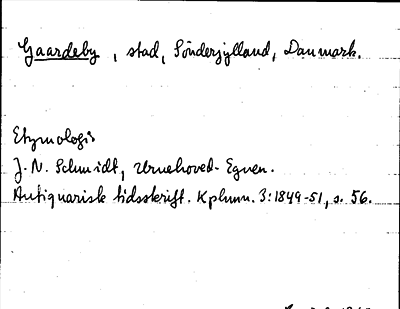 Gaardeby, stad, Sönderjylland, Danmark.
Etymologi
J. N. Schmidt, Urnehoved-Egnen.
Antiquarisk tidsskrift. Kphmn. 3:1849-51, s. 56.